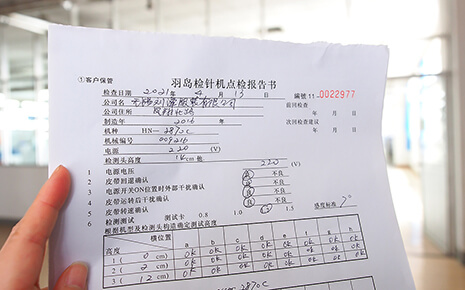 羽岛检针机点检报告书
①客户保管
编號 11-0022977
检查日期 2021年 4月 13日
前回检查
公司名称
年 月 日
公司住所
次回检查建议
制造年 2016年
年 月 日
机种 HN-2870C
机械编号 009216
电源 220 (V)
检测头高度 cm
1 电源电压 220
2 皮带回道确认 良 不良
3 电源开关ON位置时外部干扰确认 良 不良
4 皮带运转后干扰确认 良 不良
5 皮带转速确认 良 不良
6 检测测试 测试卡 0.8 1.0 感度标准 7°
根据机型及检测头钩造确定测试高度
横位置 a b c d e f g h
高度
1 ( 0 cm) OK OK OK OK OK OK OK OK
2 ( 2 cm) OK OK OK OK OK OK OK OK
3 ( 12 cm) OK OK OK OK OK OK OK OK
2870C